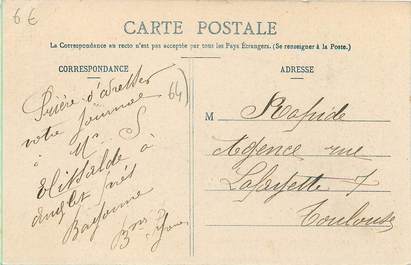 6€
CARTE POSTALE
La Correspondance au recto n'est pas acceptée par tous les Pays Étrangers. (Se renseigner à la Poste.)
CORRESPONDANCE
ADRESSE
64)
Prière d'adresser
votre journée
à Mr S
Elissalde à
Anglet près
Bayonne
M Rapide
Agence rue
Lafayette 7
Toulouse